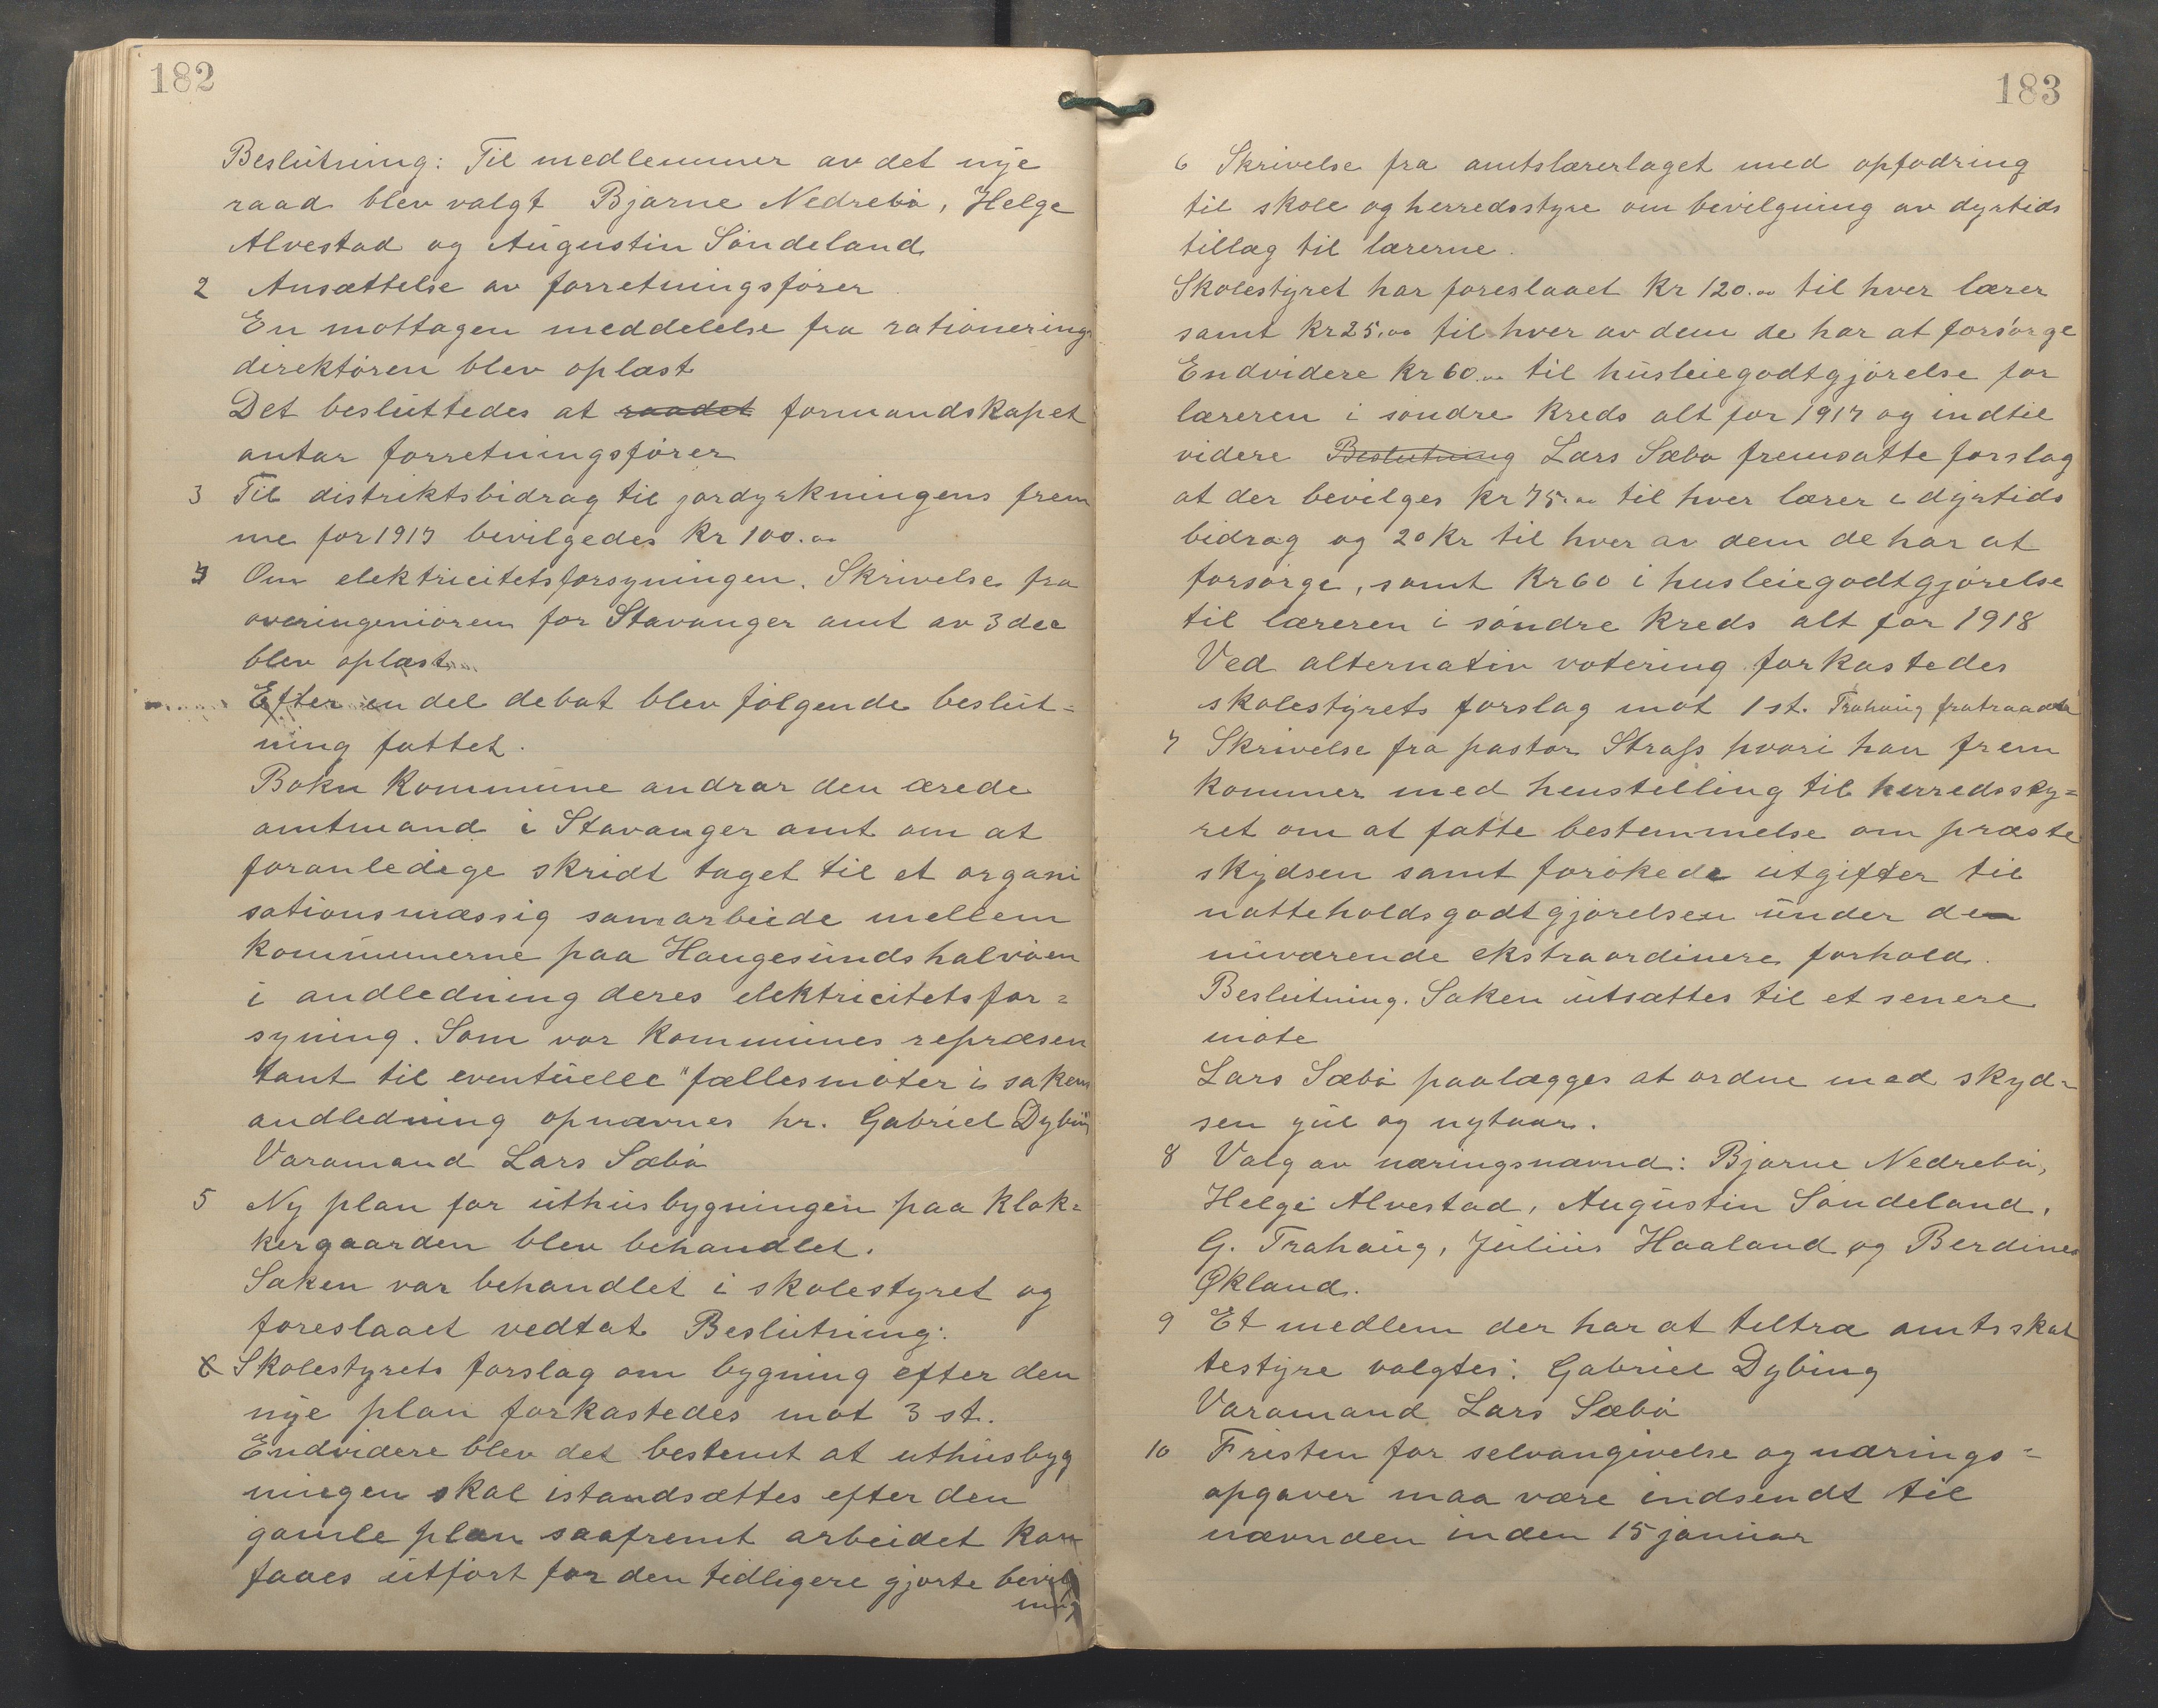 182
Beslutning: Til medlemmer av det nye
raad blev valgt Bjarne Nedrebö, Helge
Alvestad og Augustin Söndeland
2 Ansættelse av forretningsförer
En mottagen meddelelse fra rationerings
direktören blev oplæst
Det besluttedes at raadet formandskapet
antar forretningsförer
3 Til distriktsbidrag til jordyrkningens frem
me for 1917 bevilgedes Kr 100.00
4 Om elektricitetsforsyningen. Skrivelse fra
overingeniören for Stavanger amt av 3 dec
blev oplæst
Efter en del debat blev fölgende beslut-
ning fattet.
Bokn Kommune andrar den ærede
amtmand i Stavanger amt om at
foranledige skridt taget til et organi
sationsmæssig samarbeide mellem
Kommunerne paa Haugesundshalvöen
i andledning deres elektricitetsfor-
syning. Som vor Kommunes repræsen
tant til eventuelle fællesmöter i saken
andledning opnævnes hr. Gabriel Dybing
Varamand Lars Sæbö
5 Ny plan for uthusbygningen paa Klok-
kergaarden blev behandlet.
Saken var behandlet i skolestyret og
foreslaaet vedtat Beslutning:
6 Skolestyrets forslag om bygning efter den
nye plan forkastedes mot 3 st.
Endvidere blev det bestemt at uthusbyg
ningen skal istandsættes efter den
gamle plan saafremt arbeidet kan
faaes utfört for den tidligere gjorte bevilg
ning
183
6 Skrivelse fra amtslærerlaget med opfodring
til skole og herredsstyre om bevilgning av dyrtids
tillæg til lærerne.
Skolestyret har foreslaaet Kr 120.00 til hver lærer
samt Kr 25.00 til hver av dem de har at forsörge
Endvidere Kr 60.00 til husleiegodtgjörelse for
læreren i söndre Kreds alt for 1917 og indtil
videre Beslutning Lars Sæbö fremsatte forslag
at der bevilges Kr 75.00 til hver lærer i dyrtids
bidrag og 20 Kr til hver av dem de har at
forsörge, samt Kr 60 i husleiegodtgjörelse
til læreren i söndre Kreds alt for 1918
Ved alternativ votering forkastedes
skolestyrets forslag mot 1 st. Trahaug fratraadte
7 Skrivelse fra pastor Strass hvori han frem
kommer med henstilling til herredssty-
ret om at fatte bestemmelse om præste
skydsen samt forökede utgifter til
natteholdsgodtgjörelsen under de
nuværende ekstraordinere forhold.
Beslutning. Saken utsættes til et senere
möte
Lars Sæbö paalægges at ordne med skyd-
sen jul og nytaar.
8 Valg av næringsnævnd: Bjarne Nedrebö,
Helge Alvestad, Augustin Söndeland,
G. Trahaug, Julius Haaland og Berdines
Økland.
9 Et medlem der har at tiltræ amtsskat
testyre valgtes: Gabriel Dybing
Varamand Lars Sæbö
10 Fristen for selvangivelse og nærings-
opgaver maa være indsendt til
nævnden inden 15 januar